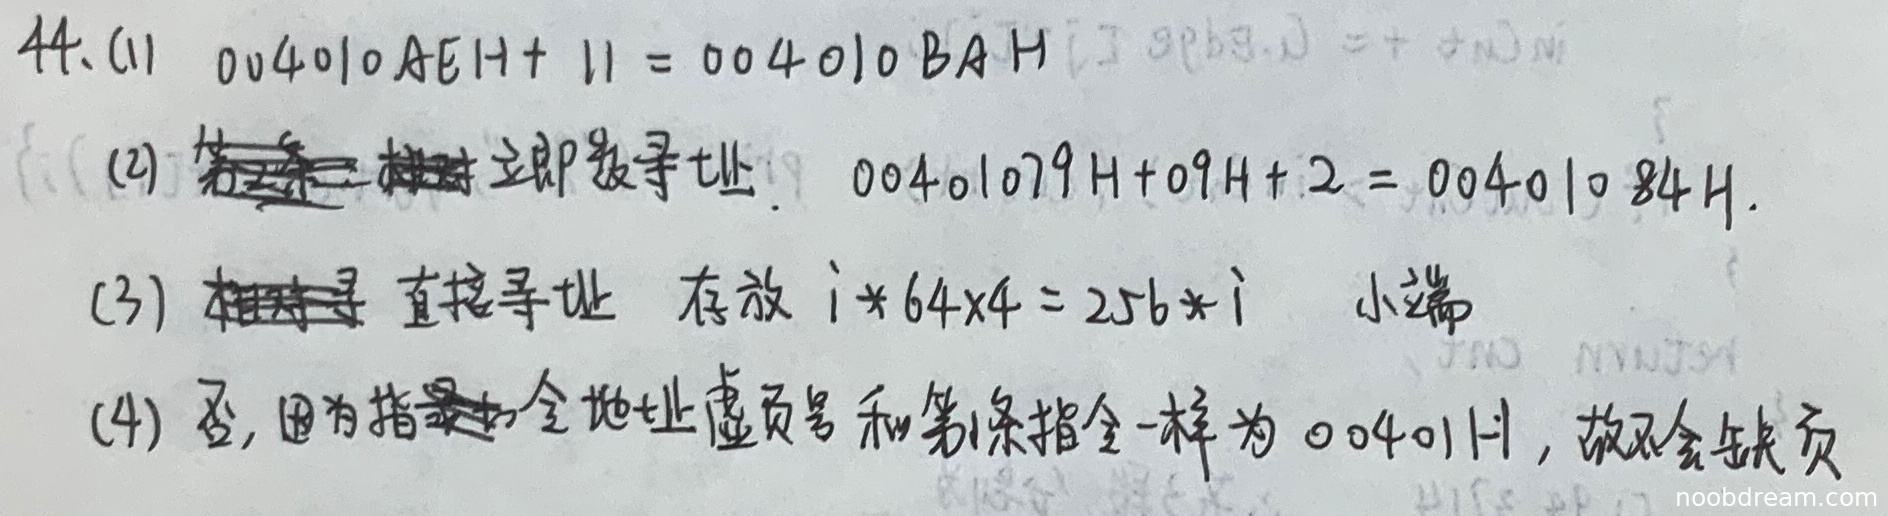 44、(1) 004010AEH + 11 = 004010BAH
(2) 立即数寻址. 00401079H+09H+2 = 00401084H.
(3) 直接寻址 存放 i*64×4=256*i 小端
(4) 否, 因为指令地址虚页号和第1条指令一样为00401H, 故不会缺页
noobdream.com